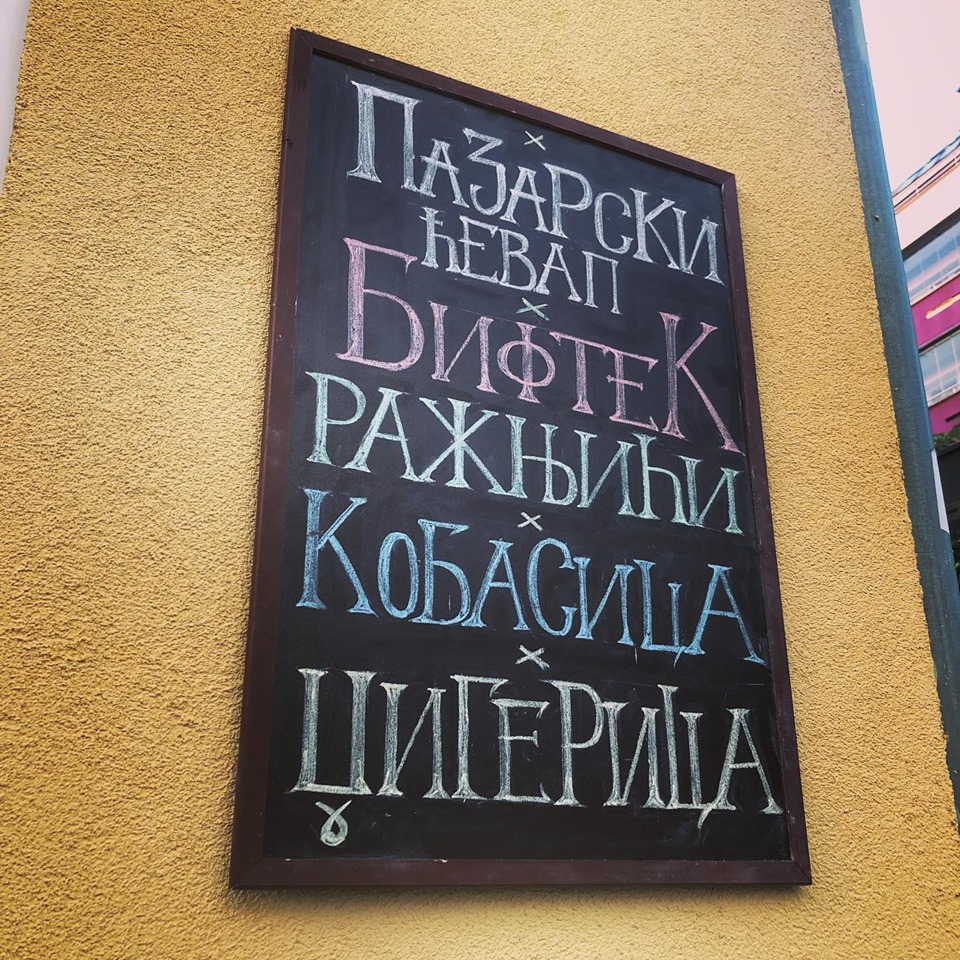 ПАЗАРСКИ
ЋЕВАП
БИФТЕК
РАЖЊИЋИ
КОБАСИЦА
ЏИГЕРИЦА